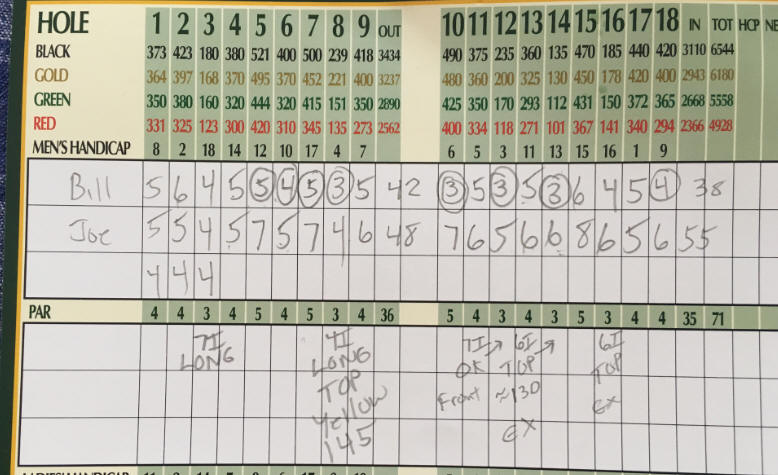 HOLE 1 2 3 4 5 6 7 8 9 OUT 10 11 12 13 14 15 16 17 18 IN TOT HCP NE
BLACK 373 423 180 380 521 400 500 239 418 3434 490 375 235 360 135 470 185 440 420 3110 6544
GOLD 364 397 168 370 495 370 452 221 400 3237 480 360 200 325 130 450 178 420 400 2943 6180
GREEN 350 380 160 320 444 320 415 151 350 2890 425 350 170 293 112 431 150 372 365 2668 5558
RED 331 325 123 300 420 310 345 135 273 2562 400 334 118 271 101 367 141 340 294 2366 4928
MEN'S HANDICAP 8 2 18 14 12 10 17 4 7 6 5 3 11 13 15 16 1 9
Bill 5 6 4 5 5 4 5 3 5 42 3 5 3 5 3 6 4 5 4 38
Joe 5 5 4 5 7 5 7 4 6 48 7 6 5 6 6 8 6 5 6 55
4 4 4
PAR 4 4 3 4 5 4 5 3 4 36 5 4 3 4 3 5 3 4 4 35 71
7I 4I 7I → 6I → 6I
LONG LONG OK TOP TOP
TOP Front ~130 EX
Yellow EX
145